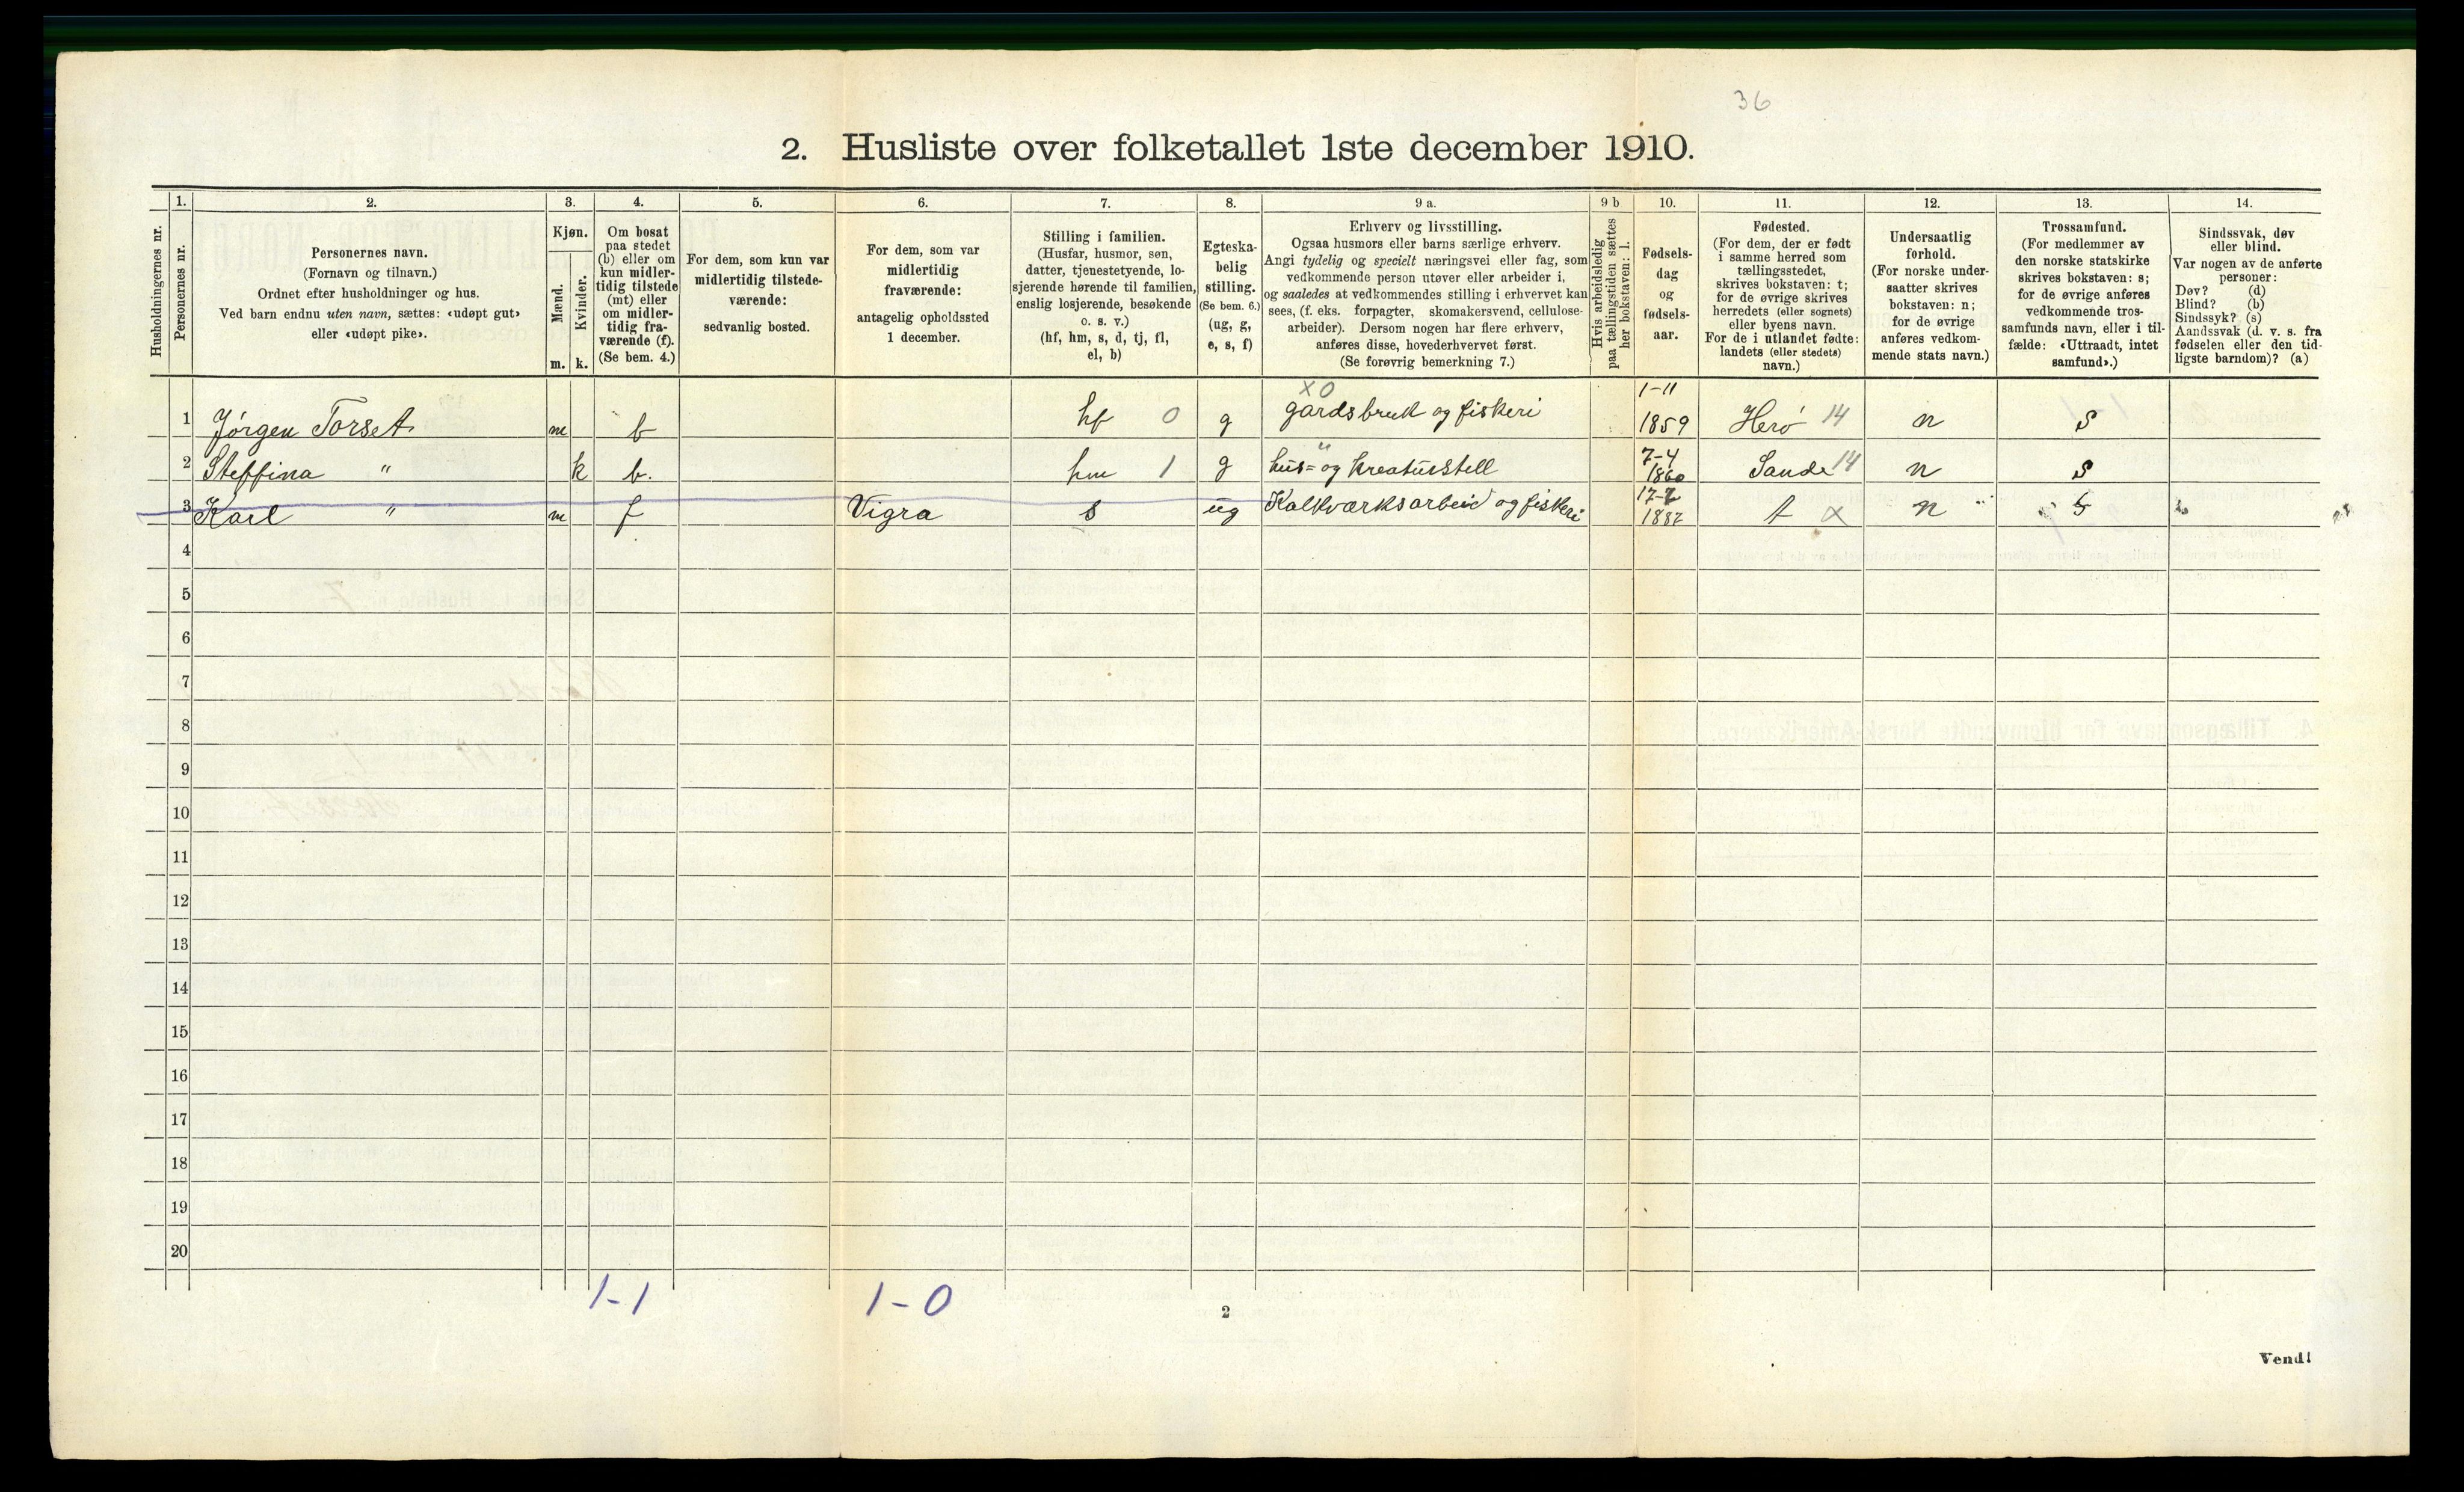 36
2. Husliste over folketallet 1ste december 1910.
Husholdningernes nr.
1.
Personernes nr.
2.
Personernes navn.
(Fornavn og tilnavn.)
Ordnet efter husholdninger og hus.
Ved barn endnu uten navn, sættes: «udøpt gut»
eller «udøpt pike».
3.
Kjøn.
Mænd.
Kvinder.
m. k.
4.
Om bosat
paa stedet
(b) eller om
kun midler-
tidig tilstede
(mt) eller
om midler-
tidig fra-
værende (f).
(Se bem. 4.)
5.
For dem, som kun var
midlertidig tilstede-
værende:
sedvanlig bosted.
6.
For dem, som var
midlertidig
fraværende:
antagelig opholdssted
1 december.
7.
Stilling i familien.
(Husfar, husmor, søn,
datter, tjenestetyende, lo-
sjerende hørende til familien,
enslig losjerende, besøkende
o. s. v.)
(hf, hm, s, d, tj, fl,
el, b)
8.
Egteska-
belig
stilling.
(Se bem. 6.)
(ug, g,
e, s, f)
9 a.
Erhverv og livsstilling.
Ogsaa husmors eller barns særlige erhverv.
Angi tydelig og specielt næringsvei eller fag, som
vedkommende person utøver eller arbeider i,
og saaledes at vedkommendes stilling i erhvervet kan
sees, (f. eks. forpagter, skomakersvend, cellulose-
arbeider). Dersom nogen har flere erhverv,
anføres disse, hovederhvervet først.
(Se forøvrig bemerkning 7.)
9 b
Hvis arbeidsledig
paa tællingstiden sættes
her bokstaven: l.
10.
Fødsels-
dag
og
fødsels-
aar.
11.
Fødested.
(For dem, der er født
i samme herred som
tællingsstedet,
skrives bokstaven: t;
for de øvrige skrives
herredets (eller sognets)
eller byens navn.
For de i utlandet fødte:
landets (eller stedets)
navn.)
12.
Undersaatlig
forhold.
(For norske under-
saatter skrives
bokstaven: n;
for de øvrige
anføres vedkom-
mende stats navn.)
13.
Trossamfund.
(For medlemmer av
den norske statskirke
skrives bokstaven: s;
for de øvrige anføres
vedkommende tros-
samfunds navn, eller i til-
fælde: «Uttraadt, intet
samfund».)
14.
Sindssvak, døv
eller blind.
Var nogen av de anførte
personer:
Døv? (d)
Blind? (b)
Sindssyk? (s)
Aandssvak (d. v. s. fra
fødselen eller den tid-
ligste barndom)? (a)
1 Jørgen Torset m b hf 0 g x0 gårdsbruk og fiskeri 1-11 1859 Herø 14 n s
2 Steffina " k b. hm 1 g hus= og kreaturstell 7-4 1860 Sande 14 n s
3 Karl " m f Vigra s ug Kalkværksarbeid og fiskeri 1887 t x n s
4
5
6
7
8
9
10
11
12
13
14
15
16
17
18
19
20
1-1 1-0
2
Vend!